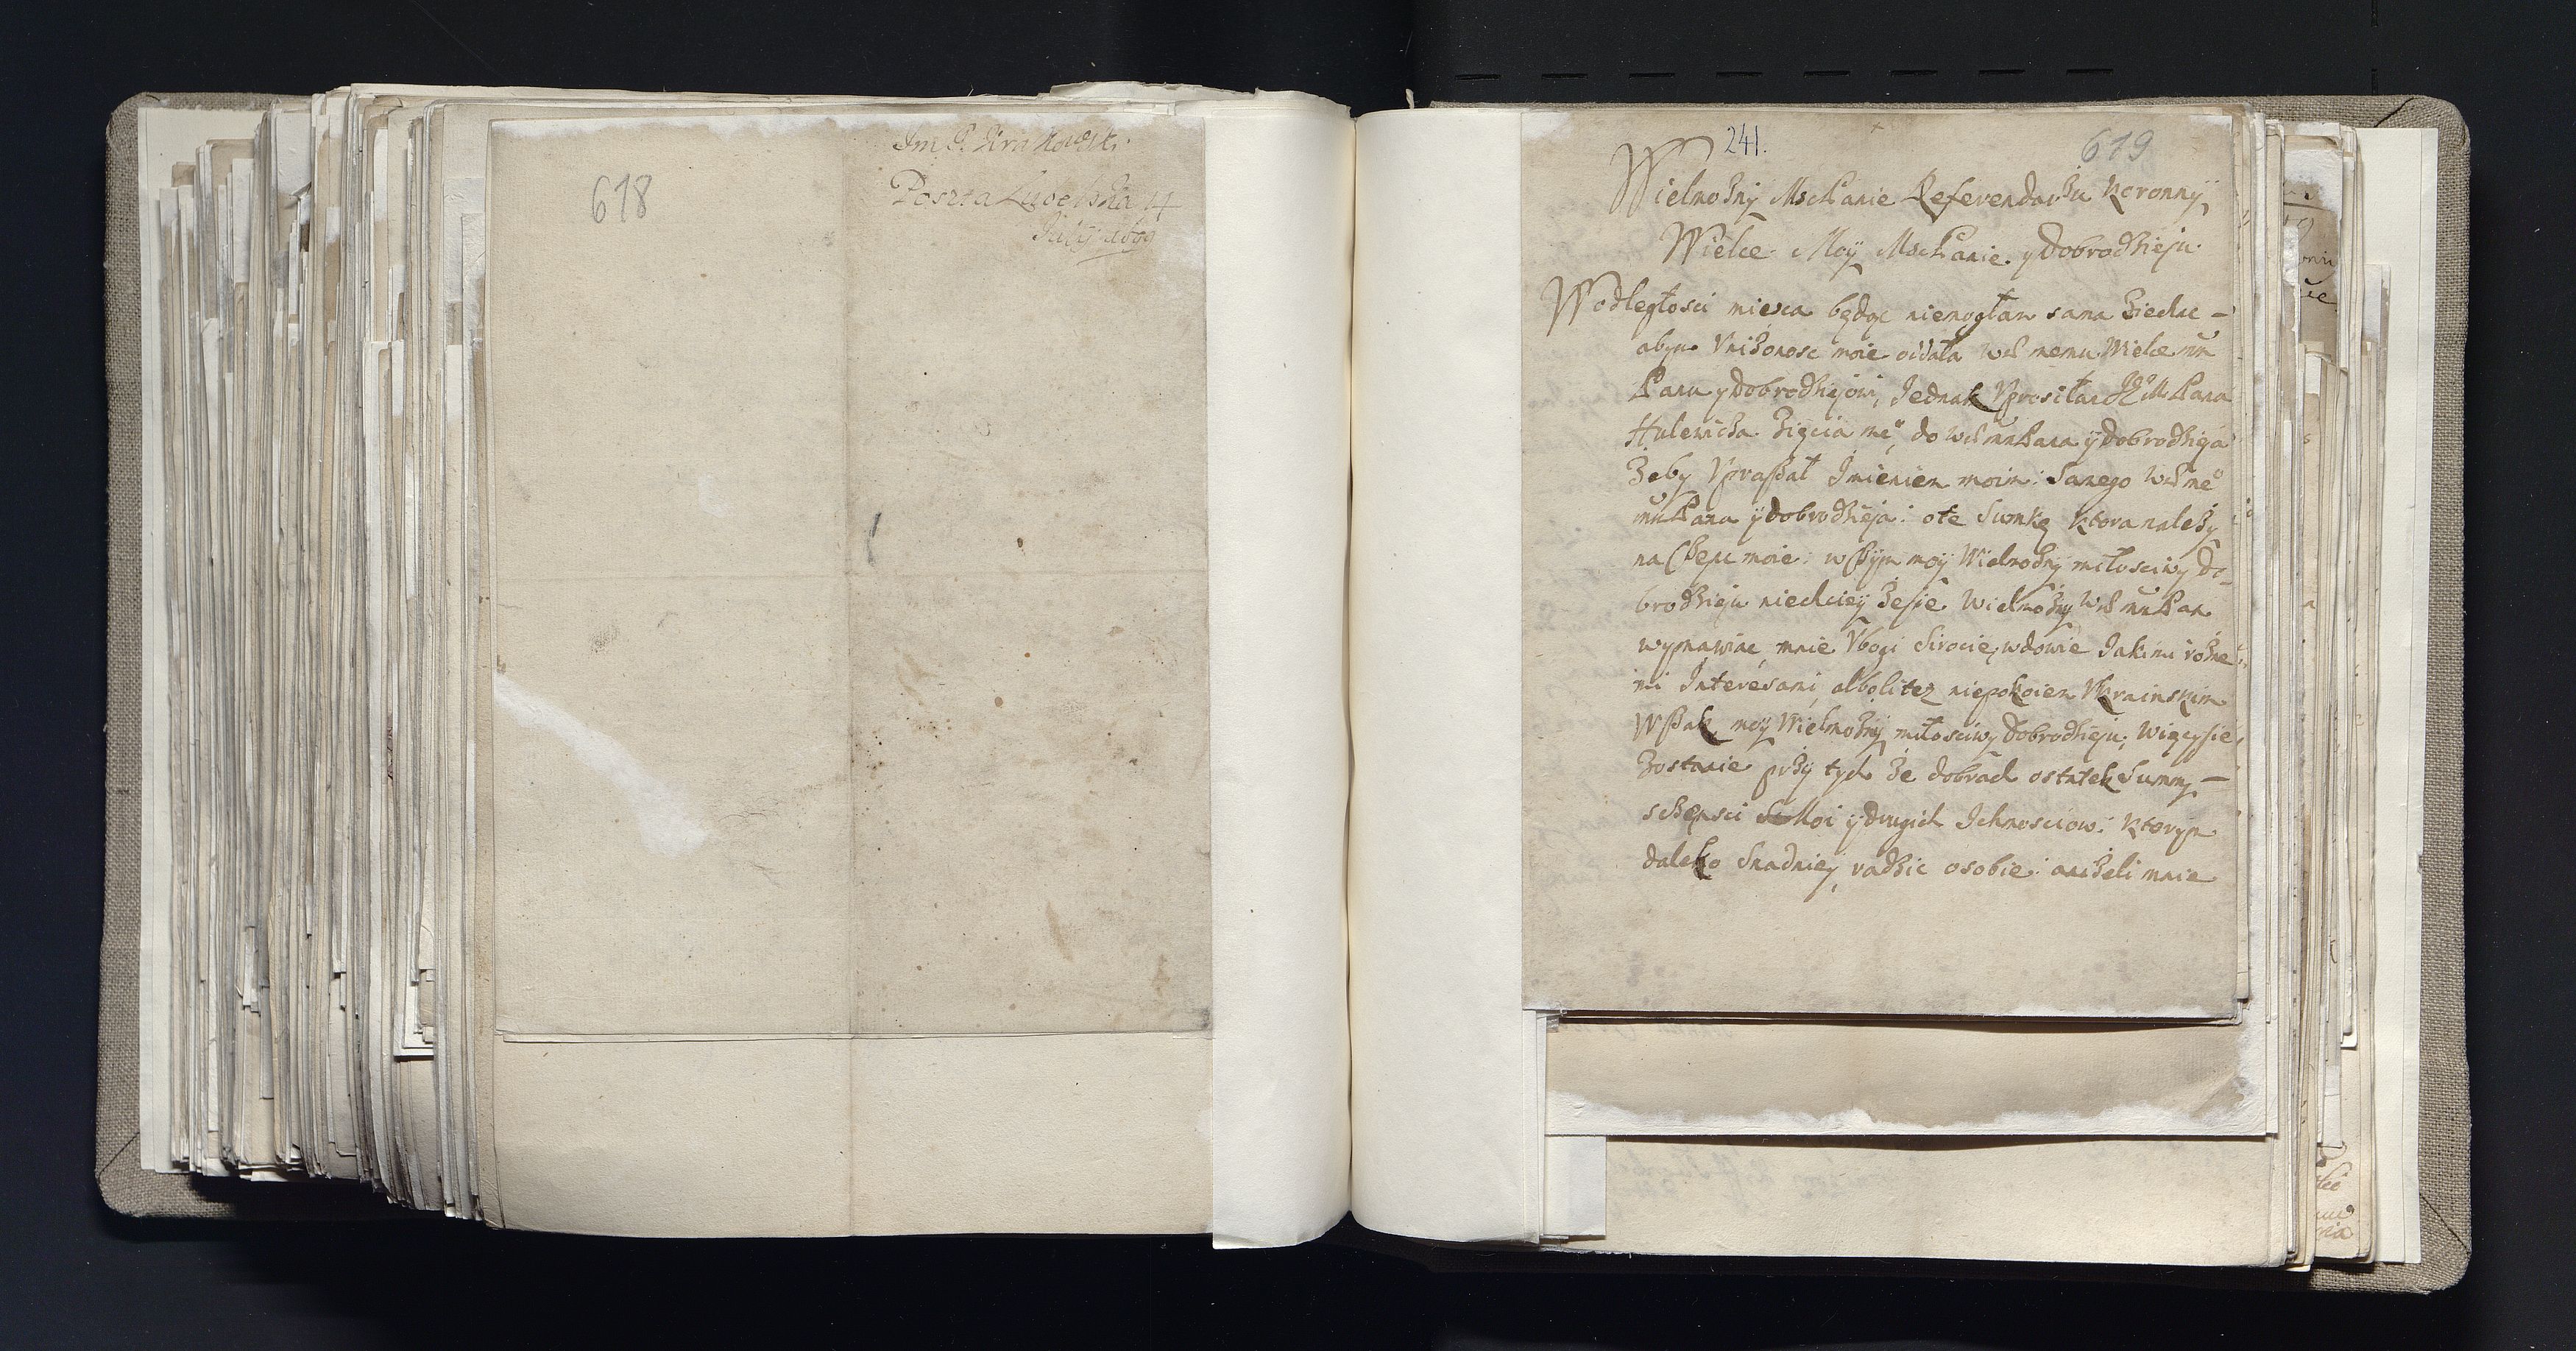 Im P. Krakowski
618
Poszta Lubelska 14
July 1669
241.
619
Wielmożny MsćPanie Referendarżu Koronny,
Wielce Moÿ MsćPanie y Dobrodżieju
W odległosci mieısca będąc niemogłam sama żiechac –
abym Vniżonosc moię oddała WM memu Wielce mu
Panu y dobrodżiejowi, Jednak Vprosiłam JE° M Pana
Hulewicża żięcia me°, do WM mmPana ÿ dobrodżieja
żeby Vpraszał Imieniem moim: Samego WM me°
mm Pana ÿ dobrodżieja: otę Sumkę ktora należy
na część moię: w cżÿm moÿ Wielmożny miłosciwy Do-
brodżieju niechcieÿ żesie Wielmożny WM mm Pan
wymawiac mnie Vbogi Sirocie, wdowie Jakimi rożne
mi Interesami, albolitez niepokoiem Vkrainskim
Wszak moÿ Wielmożnÿ miłosciwy dobrodżieju, więcysie
żostanie prżÿ tych że dobrach ostatek Summy –
scżęsci Moi ÿ drugich Ichmosciow: ktorym
daleko Snadniey radżic osobie: aniżeli mnie